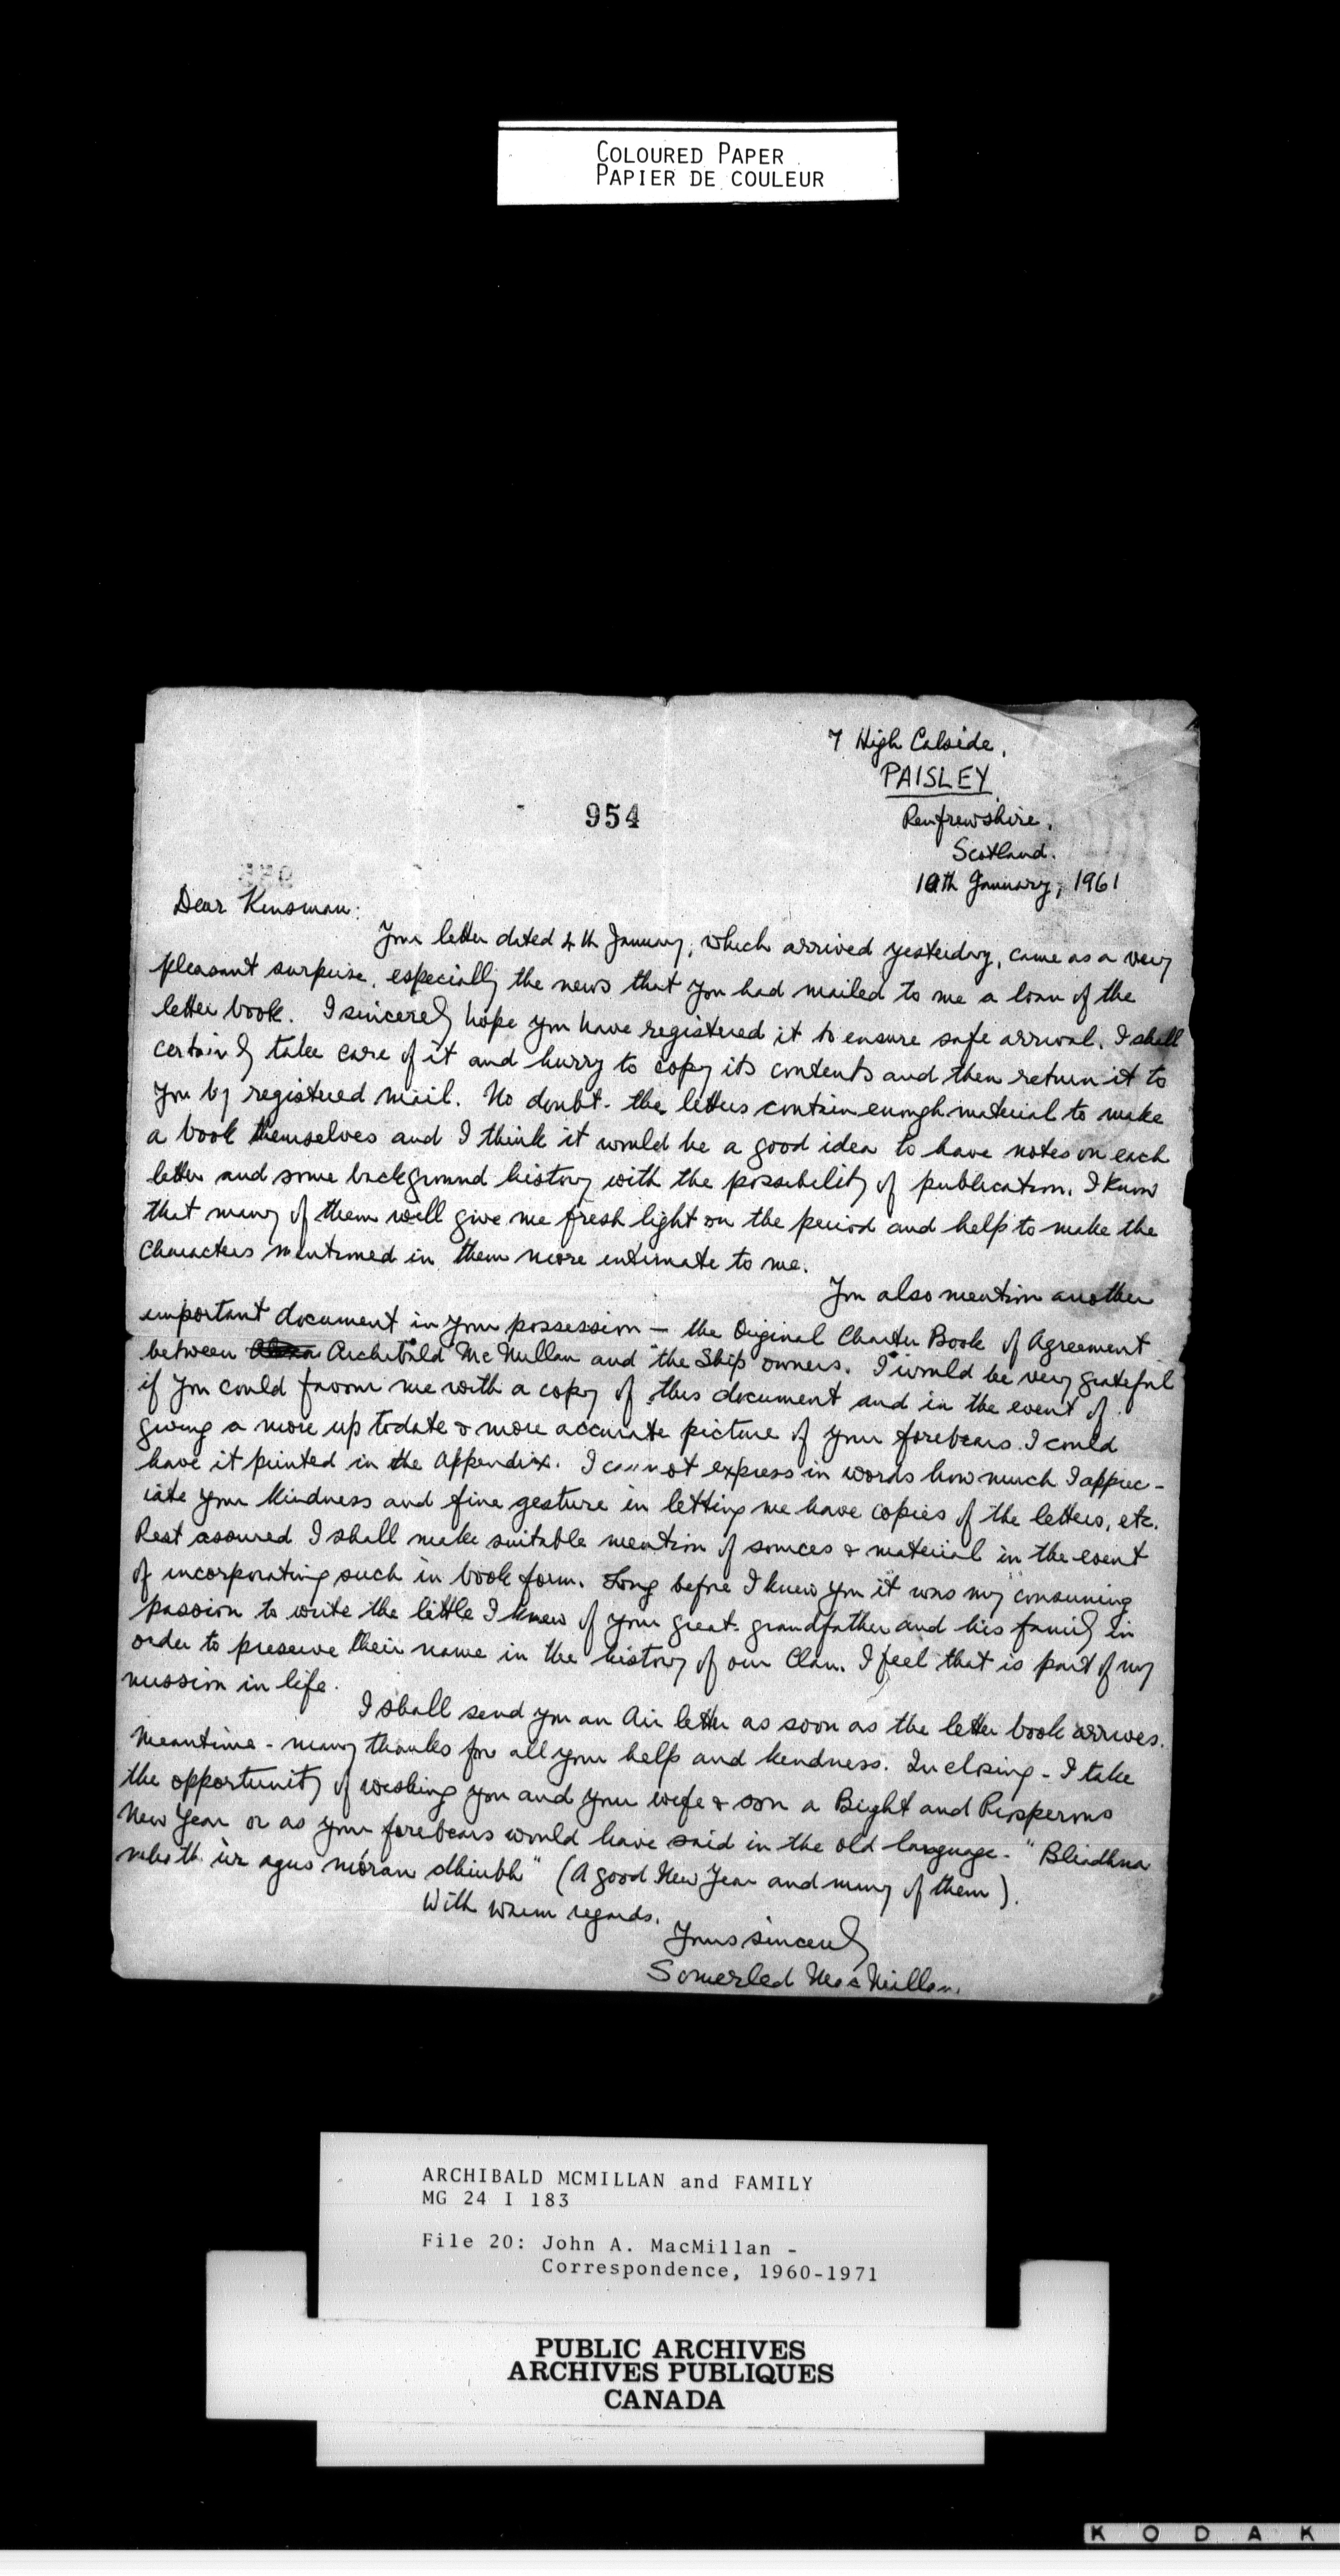 COLOURED PAPER
PAPIER DE COULEUR
7 High Calside,
PAISLEY,
Renfrewshire,
Scotland.
954
10th January, 1961
Dear Kinsman:
Your letter dated 4th January, which arrived yesterday, came as a very
pleasant surprise, especially the news that you had mailed to me a loan of the
letter book. I sincerely hope you have registered it to ensure safe arrival. I shall
certainly take care of it and hurry to copy its contents and then return it to
you by registered mail. No doubt - the letters contain enough material to make
a book themselves and I think it would be a good idea to have notes on each
letter and some background history with the possibility of publication. I know
that many of them will give me fresh light on the period and help to make the
characters mentioned in them more intimate to me.
You also mention another
important document in your possession — the Original Charter Book of Agreement
between Archibald McMillan and the Ship owners. I would be very grateful
if you could favour me with a copy of this document and in the event of
giving a more up to date & more accurate picture of your forebears I could
have it printed in the Appendix. I cannot express in words how much I apprec-
iate your kindness and fine gesture in letting me have copies of the letters, etc.
Rest assured I shall make suitable mention of sources & material in the event
of incorporating such in book form. Long before I knew you it was my consuming
passion to write the little I knew of your great-grandfather and his family in
order to preserve their name in the history of our Clan. I feel that is part of my
mission in life.
I shall send you an Air letter as soon as the letter book arrives.
Meantime - many thanks for all your help and kindness. In closing - I take
the opportunity of wishing you and your wife & son a Bright and Prosperous
New Year or as your forebears would have said in the old language - "Bliadhna
mhath ùr agus mòran dhiubh" (A good New Year and many of them).
With warm regards.
Yours sincerely
Somerled MacMillan.
ARCHIBALD MCMILLAN and FAMILY
MG 24 I 183
File 20: John A. MacMillan -
Correspondence, 1960-1971
PUBLIC ARCHIVES
ARCHIVES PUBLIQUES
CANADA
KODAK